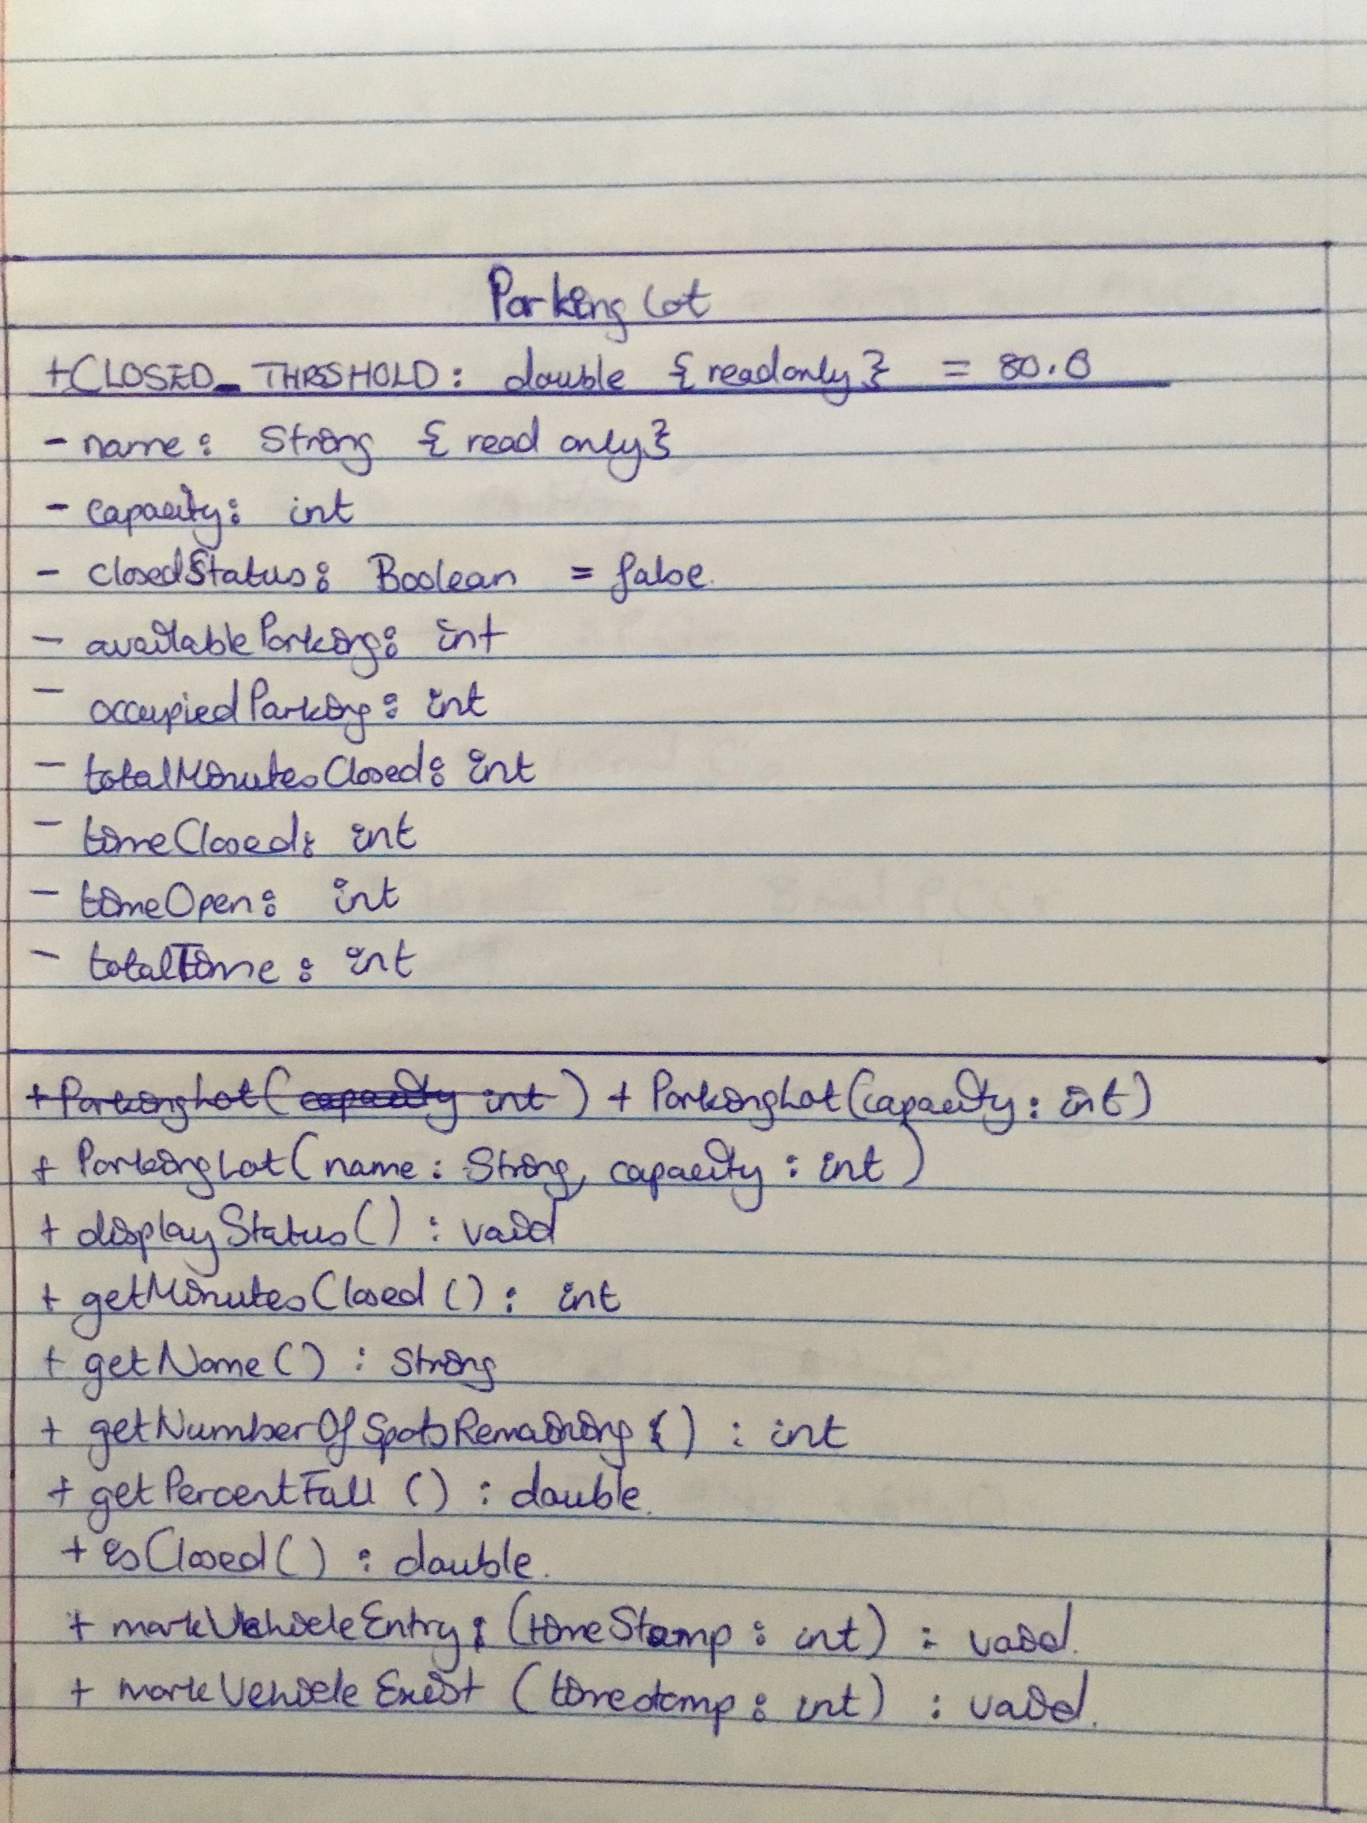 Parking Lot
+CLOSED_THRSSHOLD: double {readonly} = 80.0
- name: String {read only}
- capacity: int
- closedStatus: Boolean = false.
- availableParking: int
- occupiedParking: int
- totalMinutesClosed: int
- timeClosed: int
- timeOpen: int
- totalTime: int
+ParkingLot(capacity int) + ParkingLot(capacity: int)
+ ParkingLot(name: String, capacity: int)
+ displayStatus(): void
+ getMinutesClosed(): int
+ getName(): String
+ getNumberOfSpotsRemaining(): int
+ getPercentFull(): double.
+ isClosed(): double.
+ markVehicleEntry: (timeStamp: int): void.
+ markVehicleExist (timestamp: int): void.